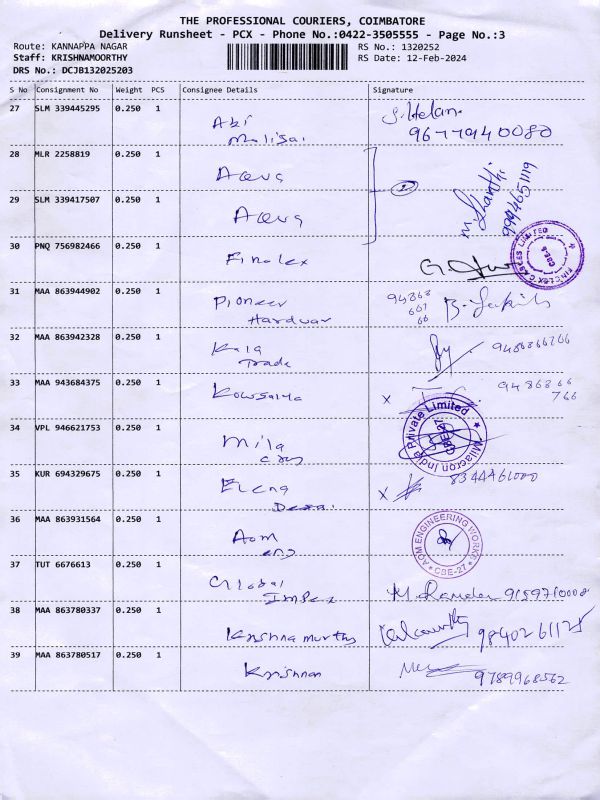 THE PROFESSIONAL COURIERS, COIMBATORE
Delivery Runsheet - PCX - Phone No.:0422-3505555 - Page No.:3
Route: KANNAPPA NAGAR
Staff: KRISHNAMOORTHY
DRS No.: DCJB132025203
RS No.: 1320252
RS Date: 12-Feb-2024
S No Consignment No Weight PCS Consignee Details Signature
27 SLM 339445295 0.250 1 Abi
S. Helan
28 MLR 2258819 0.250 1
29 SLM 339417507 0.250 1
2
M. Shanthi
9994651119
30 PNQ 756982466 0.250 1 Finolex
FINOLEX CABLES LIMITED
31 MAA 863944902 0.250 1 Pioneer
Hardwar
32 MAA 863942328 0.250 1 Kala
Trade
33 MAA 943684375 0.250 1 Kowsalya
X
34 VPL 946621753 0.250 1 Mila
Milacron India Private Limited
CBE-27
35 KUR 694329675 0.250 1
X 8344461000
36 MAA 863931564 0.250 1 Aom
eng
AOM ENGINEERING WORKS
CBE-27
37 TUT 6676613 0.250 1 Global
Impex
9159710008
38 MAA 863780337 0.250 1 Krishnamurthy
39 MAA 863780517 0.250 1 Krishnan
9789968562